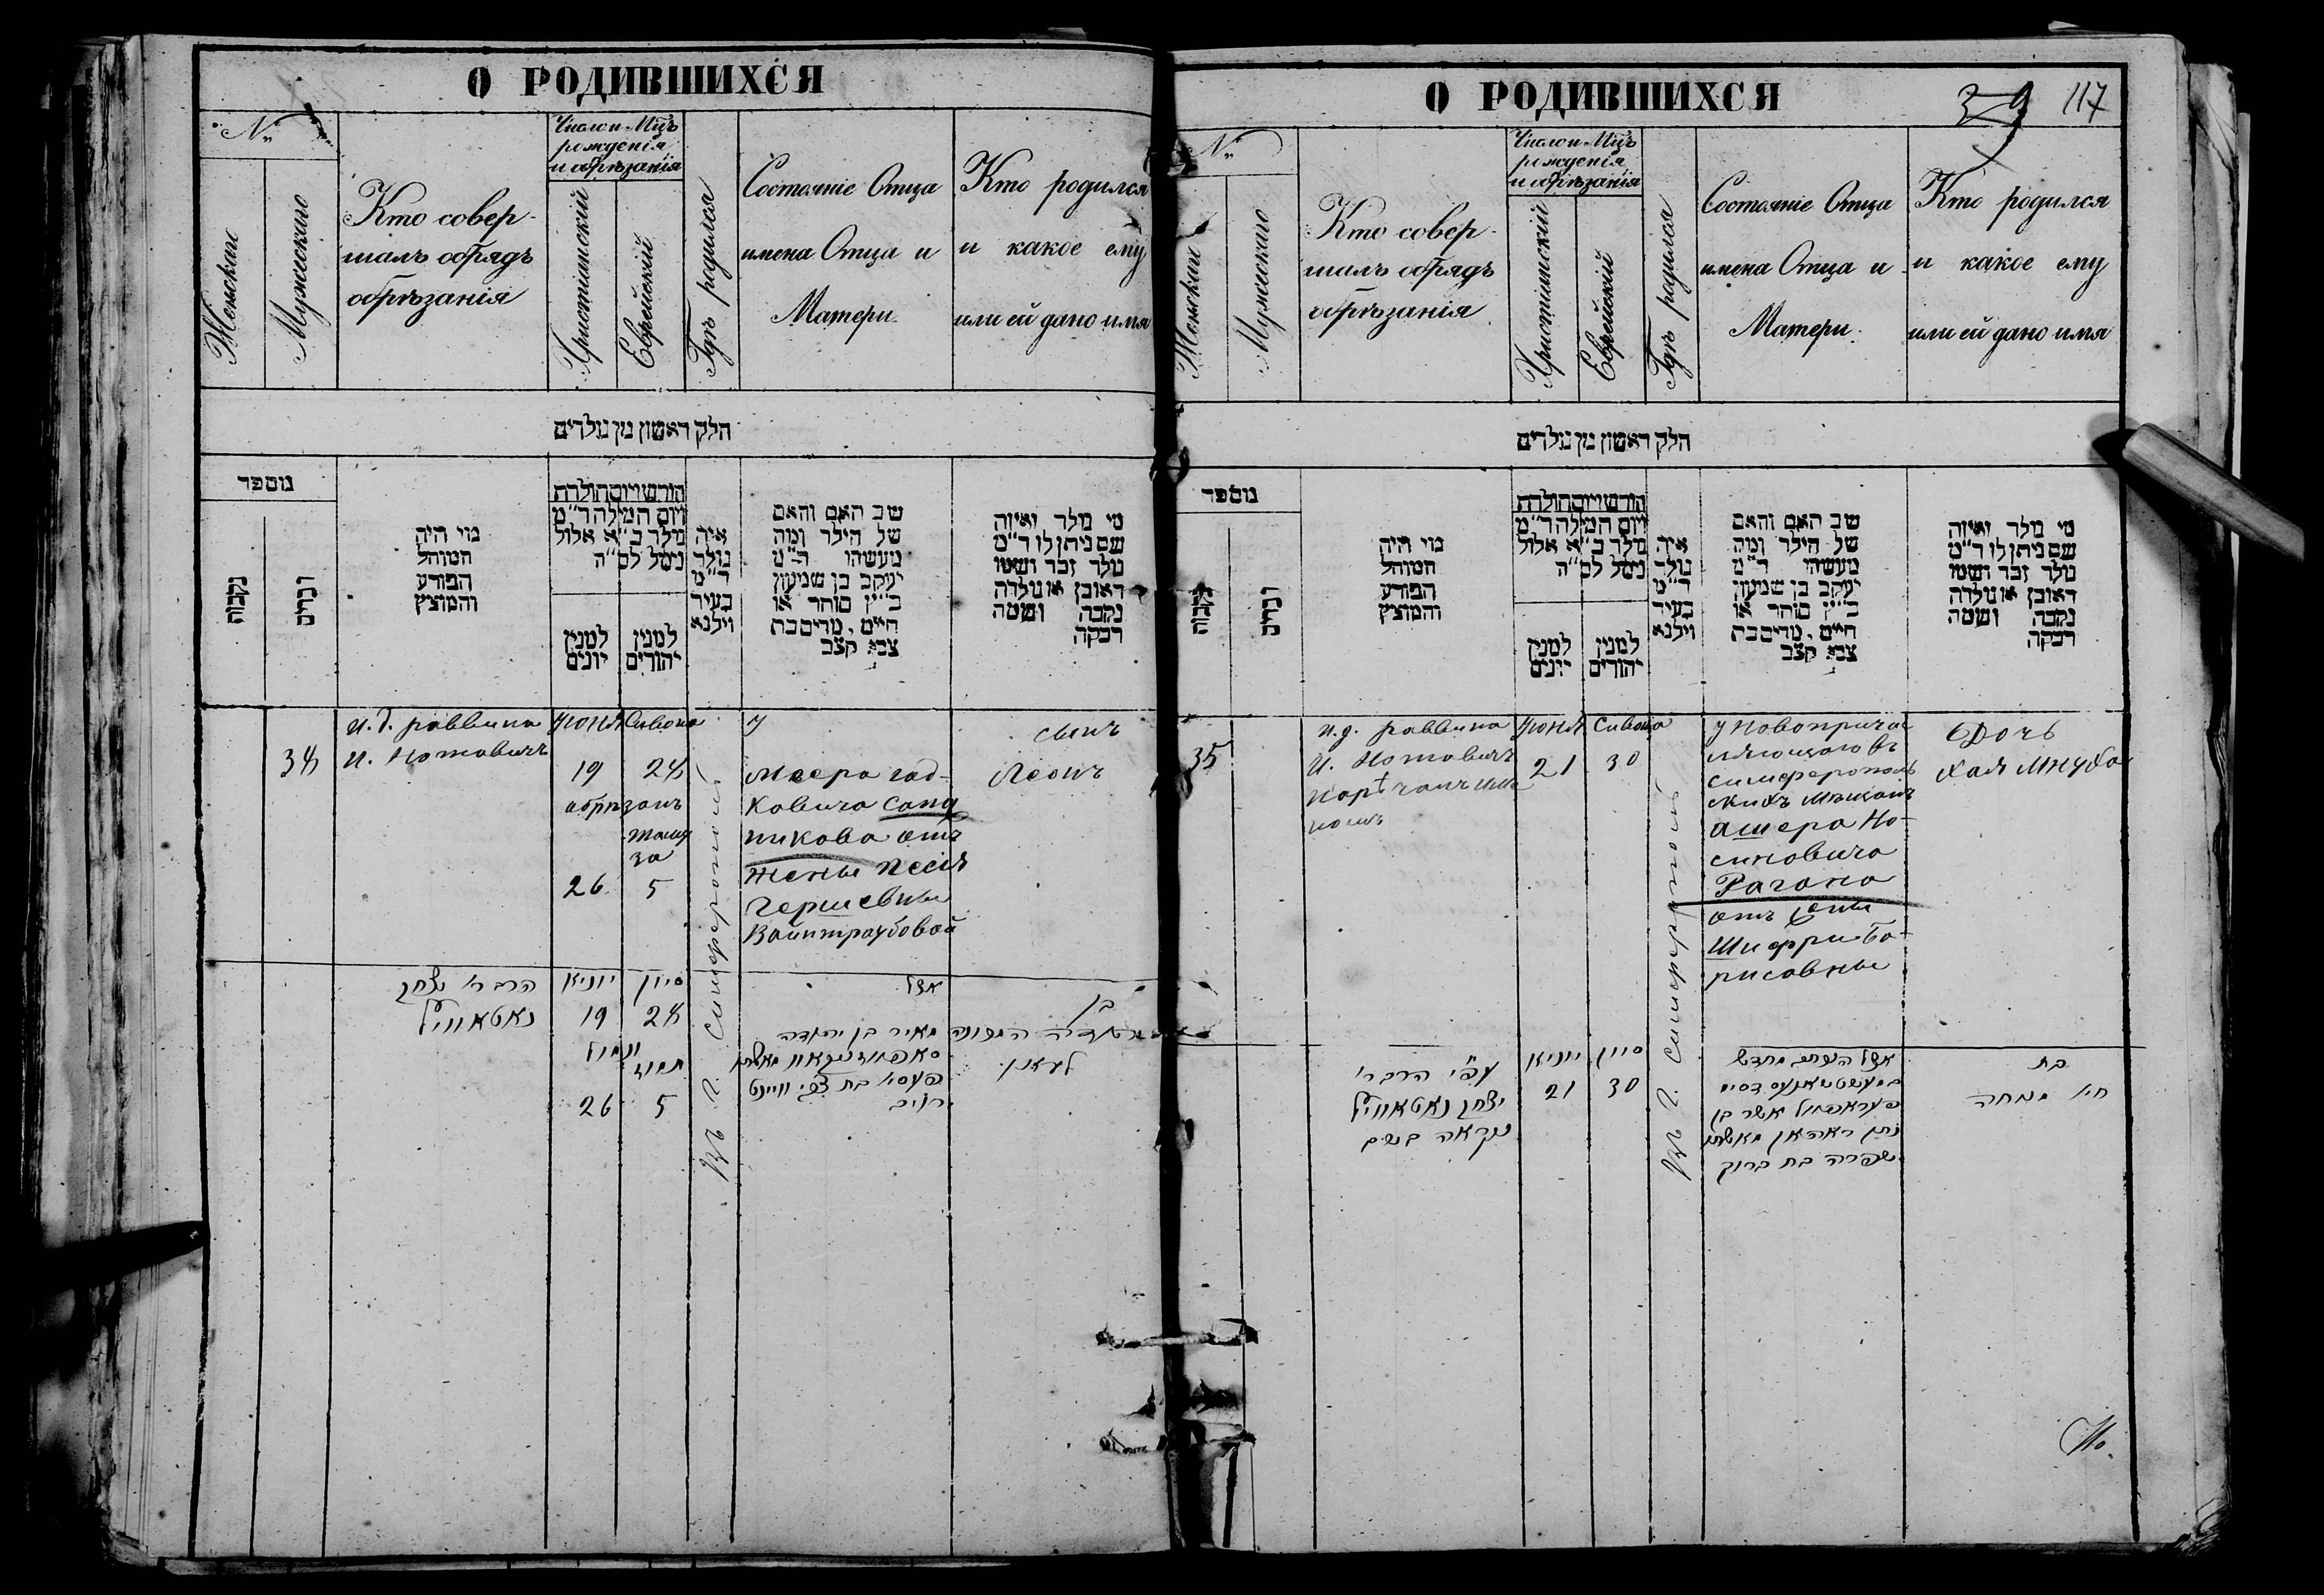 О РОДИВШИХСЯ
№
Женскаго
Мужескаго
Кто совер-
шалъ обрядъ
обрѣзанія
Число и Мцъ
рожденія
и обрѣзанія
Христіанскій
Еврейскій
Гдѣ родился
Состояніе Отца
имена Отца и
Матери.
Кто родился
и какое ему
или ей дано имя
חלק ראשון מן נולדים
מספר
נקבות
זכרים
מי היה
המוהל
הפורע
והמוצץ
חודש ויום הולדת
ויום המילה ד״מ
נולד כ״א אלול
נימל לס״ה
למנין
יונים
למנין
יהודים
איה
נולד
ד״מ
בעיר
וילנא
שב האם והאם
של הילד ומה
מעשהו ד״מ
יעקב בן שמעון
כ״ץ סוחר או
חיים, מרים בת
צבי קצב
מי נולד ואיזה
שם ניתן לו ד״מ
נולד זכר ושמו
ראובן או נולדה
נקבה ושמה
רבקה
34
и. д. раввина
И. Нотовичъ
Июня
Сивона
19
24
обрѣзанъ
Таму
за
26
5
въ г. Симферополѣ
у
Меера
ковича
никова отъ
жены Песи
Гершевны
Вайнтраубовой
сынъ
Леонъ
הרב ר׳ יצחק
נאטאוויץ
יוניא
סיון
19
24
ונמול
תמוז
26
5
אצל
מאיר בן יהודה
בת צבי וויינט
רויב
בן
המכונה
לעאן
О РОДИВШИХСЯ
39
117
№
Женскаго
Мужескаго
Кто совер-
шалъ обрядъ
обрѣзанія
Число и Мцъ
рожденія
и обрѣзанія
Христіанскій
Еврейскій
Гдѣ родился
Состояніе Отца
имена Отца и
Матери.
Кто родился
и какое ему
или ей дано имя
חלק ראשון מן נולדים
מספר
נקבות
זכרים
מי היה
המוהל
הפורע
והמוצץ
חודש ויום הולדת
ויום המילה ד״מ
נולד כ״א אלול
נימל לס״ה
למנין
יונים
למנין
יהודים
איה
נולד
ד״מ
בעיר
וילנא
שב האם והאם
של הילד ומה
מעשהו ד״מ
יעקב בן שמעון
כ״ץ סוחר או
חיים, מרים בת
צבי קצב
מי נולד ואיזה
שם ניתן לו ד״מ
נולד זכר ושמו
ראובן או נולדה
נקבה ושמה
רבקה
35
и. д. раввина
И. Нотовичъ
Июня
Сивона
21
30
въ г. Симферополѣ
у Новопричис
ляющаговъ
симферополь
скихъ мѣщанъ
Ашера Но-
синовича
Рагана
отъ жены
Шифри Бо-
рисовны
Дочь
Хая Мнуха
ע״פ הרב ר׳
יצחק נאטאוויץ
נקראה בשם
יוניא
סיון
21
30
אשר בן
נתן ראהאן מאשתו
שפרה בת ברוך
בת
חי׳ מנוחה